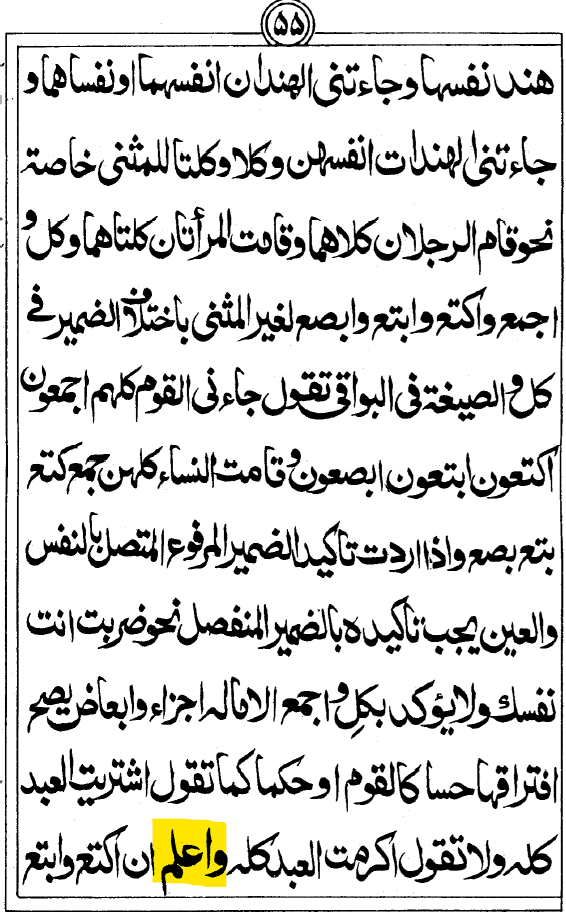 ۵۵
هند نفسها وجاءتنی الهندان انفسهما اونفساهما و
جاءتنی الهندات انفسهن وکلا وکلتا للمثنی خاصة
نحو قام الرجلان کلاهما وقامت المرأتان کلتاهما وکل و
اجمع واکتع وابتع وابصع لغیر المثنی باختلاف الضمیر فے
کل والصیغة فی البواقی تقول جاءنی القوم کلهم اجمعون
اکتعون ابتعون ابصعون وقامت النساء کلهن جمع کتع
بتع بصع واذا اردت تاکید الضمیر المرفوع المتصل بالنفس
والعین یجب تاکیده بالضمیر المنفصل نحو ضربت انت
نفسك ولا یؤکد بکل واجمع الا ماله اجزاء وابعاض یصح
افتراقها حسا کالقوم او حکما کما تقول اشتریت العبد
کله ولا تقول اکرمت العبد کله واعلم ان اکتع وابتع